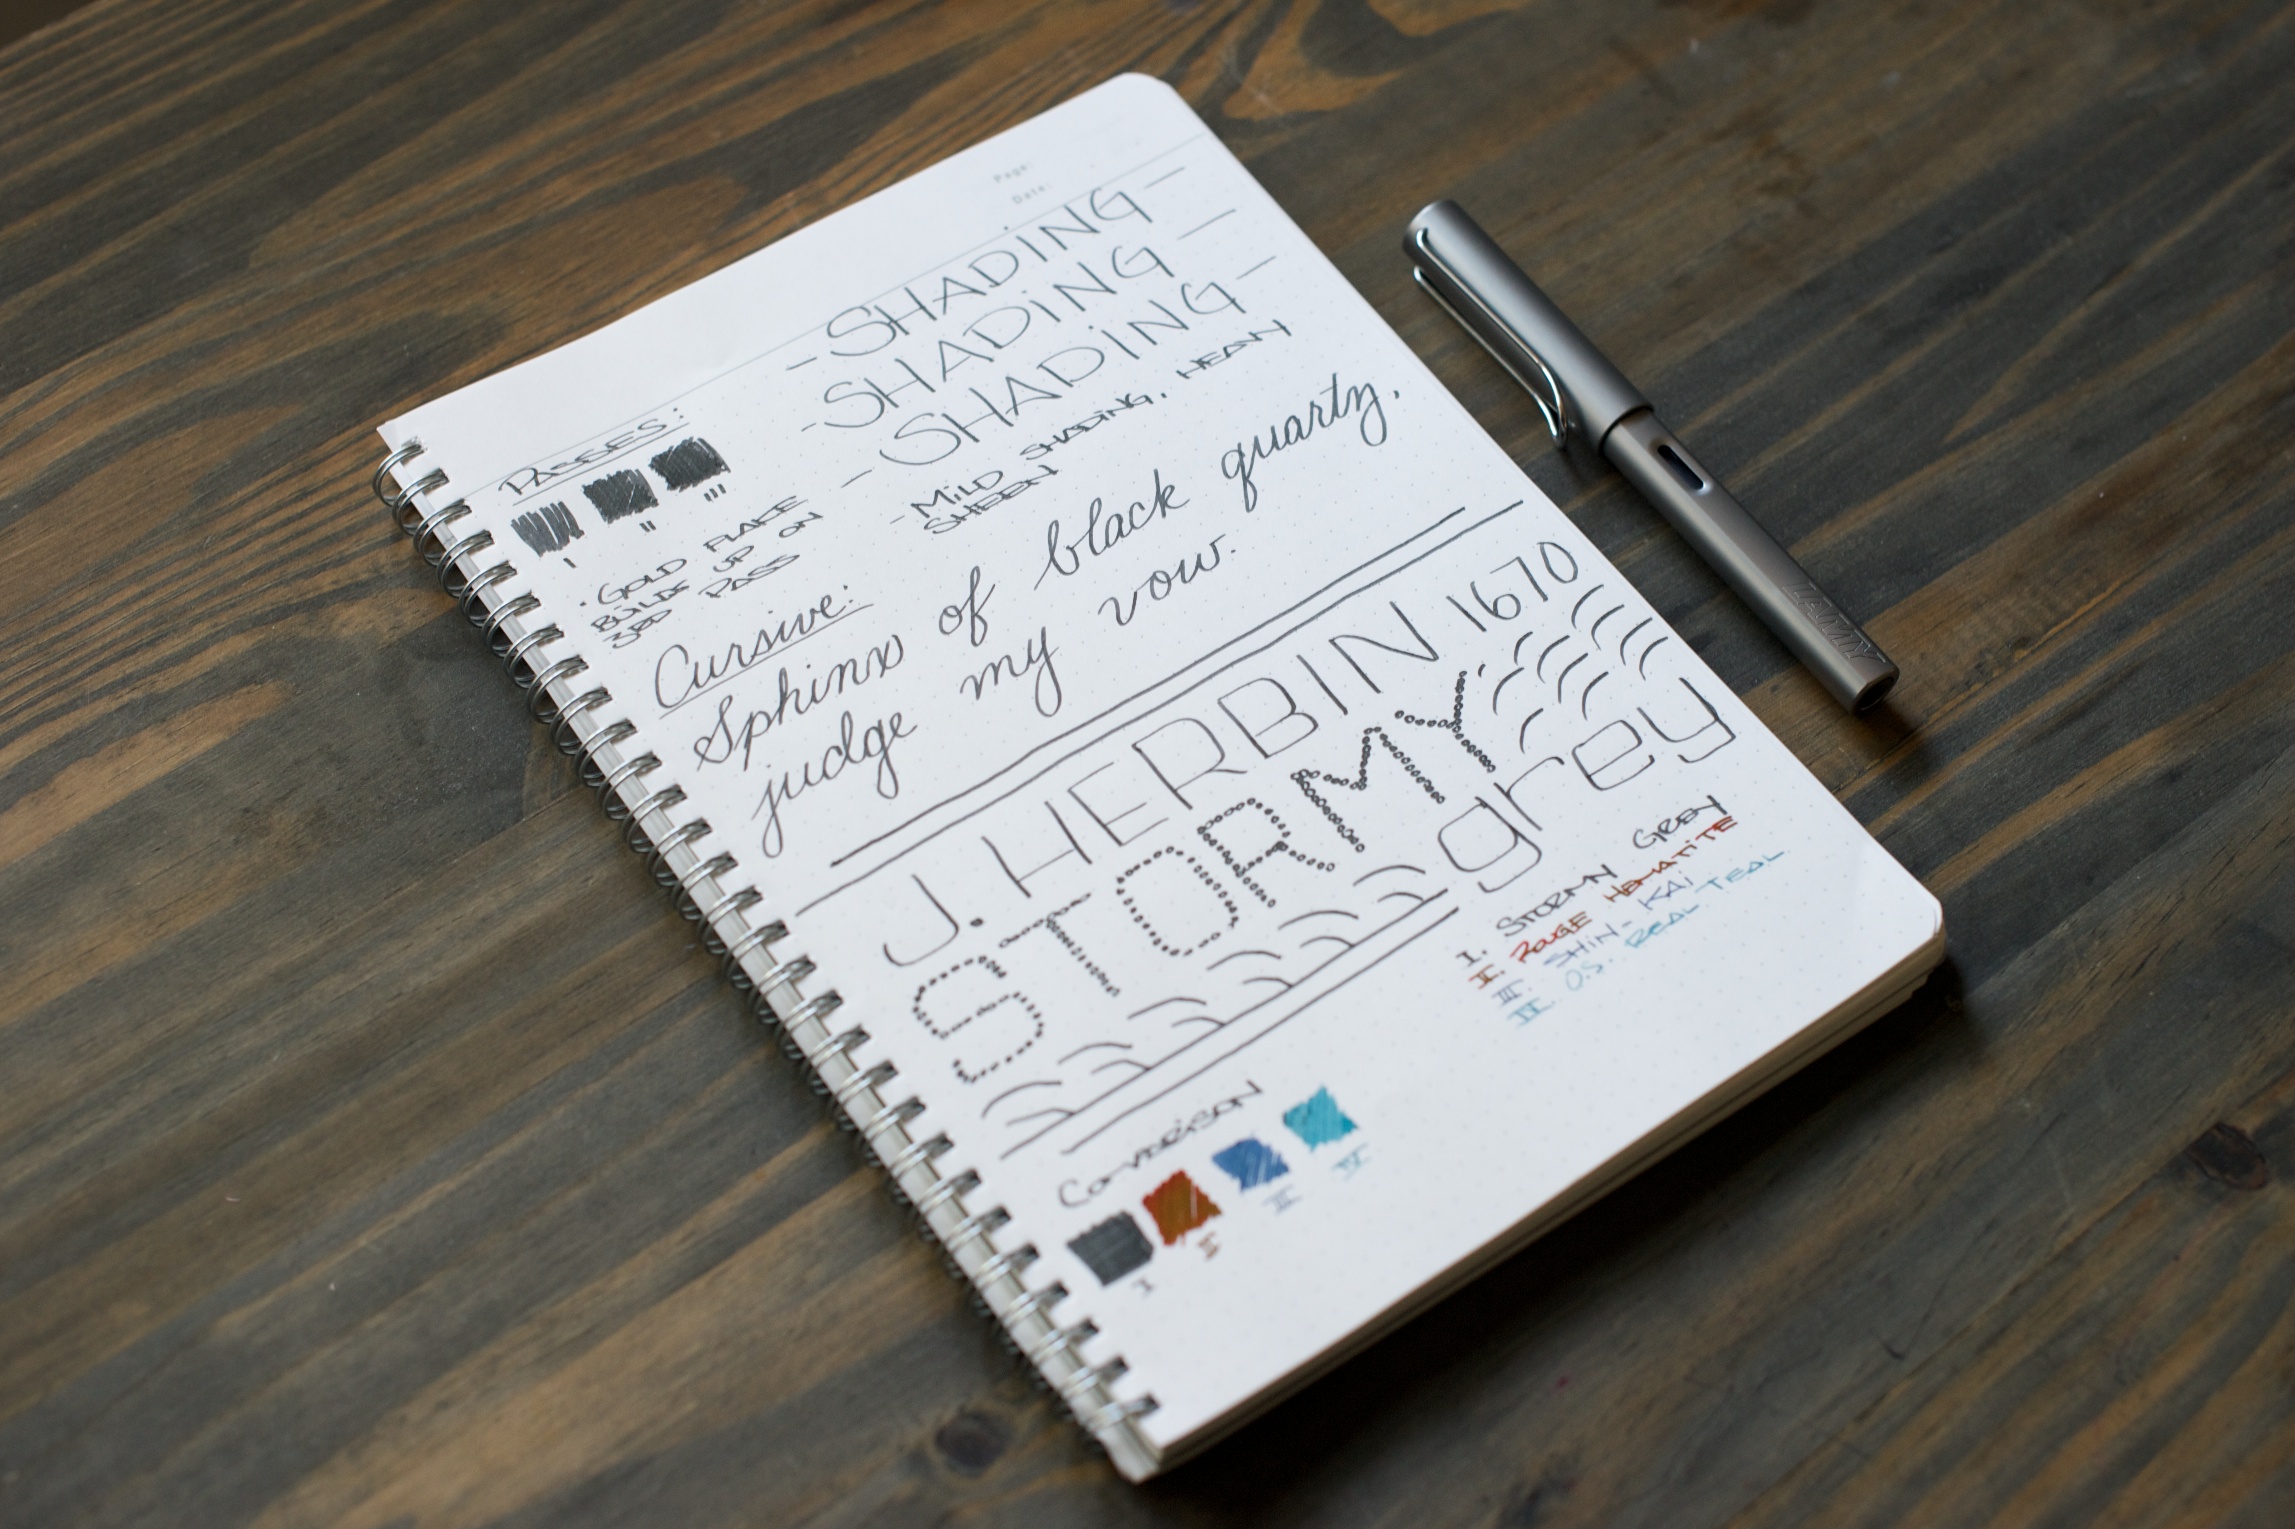 Page:
Date:
-SHADING-
-SHADING-
-SHADING-
- MILD SHADING, HEAVY
SHEEN
PASSES:
I
II
III
• GOLD FLAKE
BUILDS UP ON
3RD PASS
Cursive:
Sphinx of black quartz,
judge my vow.
J. HERBIN 1670
STORMY
grey
I. STORMY GREY
II. ROUGE HEMATITE
III. SHIN-KAI
IV. O.S. REAL TEAL
COMPARISON
I
II
III
IV
LAMY